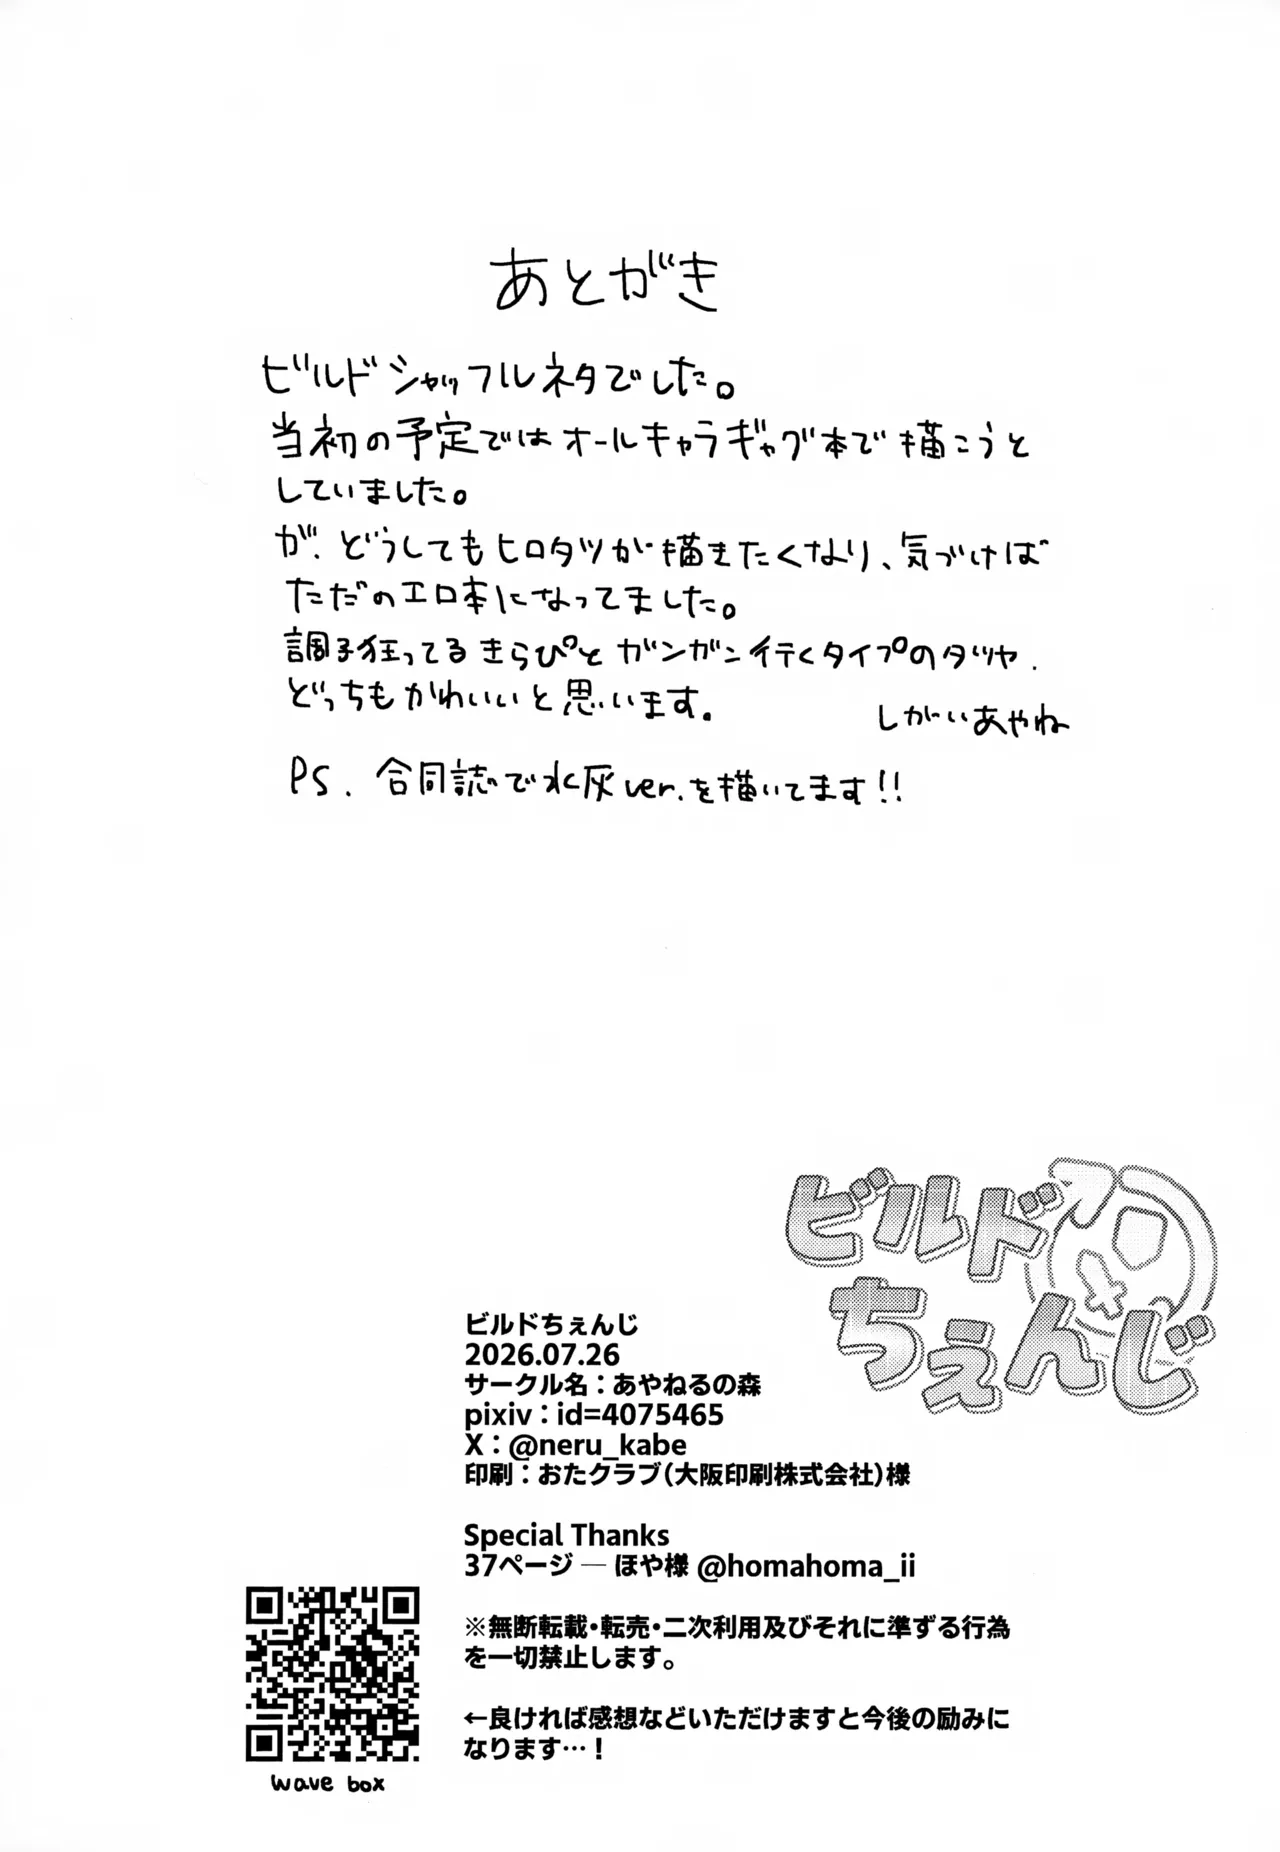 あとがき
ビルドシャッフルネタでした。
当初の予定ではオールキャラギャグ本で描こうと
していました。
が、どうしてもヒロタツが描きたくなり、気づけば
ただのエロ本になってました。
調子狂ってるきらぴとガンガン行くタイプのタツヤ、
どっちもかわいいと思います。
しがいあやね
PS. 合同誌で水灰ver.を描いてます!!
ビルド
ちぇんじ
ビルドちぇんじ
2026.07.26
サークル名：あやねるの森
pixiv：id=4075465
X：@neru_kabe
印刷：おたクラブ(大阪印刷株式会社)様
Special Thanks
37ページ ― ほや様 @homahoma_ii
※無断転載・転売・二次利用及びそれに準ずる行為
を一切禁止します。
←良ければ感想などいただけますと今後の励みに
なります…！
wave box